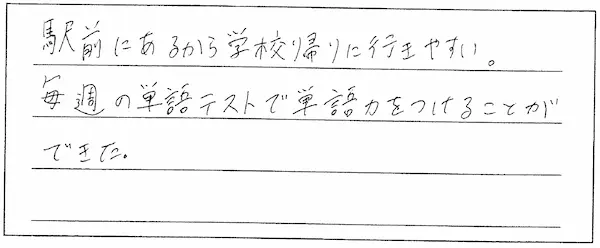 駅前にあるから学校帰りに行きやすい。
毎週の単語テストで単語力をつけることが
できた。